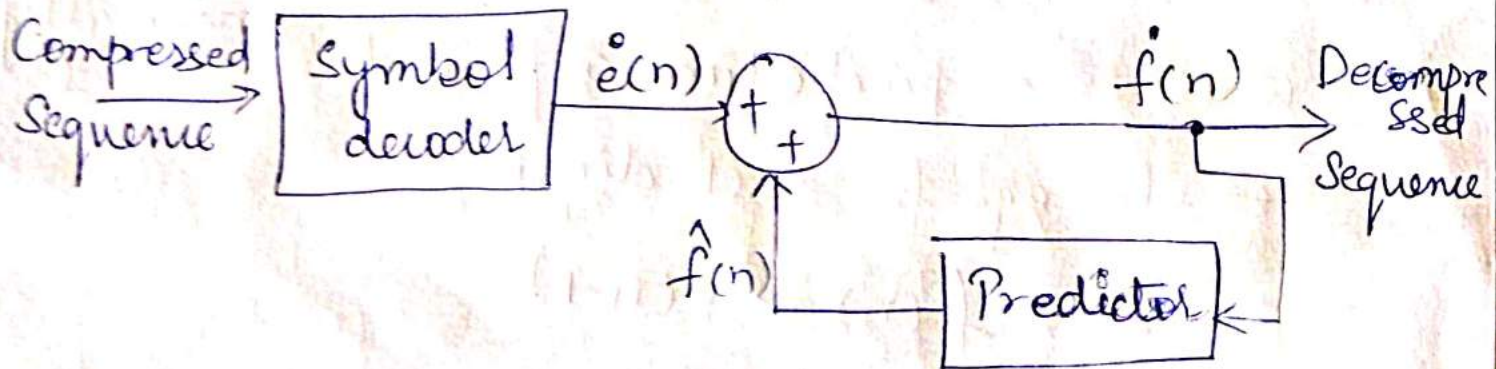 Compressed
Sequence
Symbol
decoder
ė(n)
+
+
ḟ(n)
Decompre
ssed
Sequence
f̂(n)
Predictor